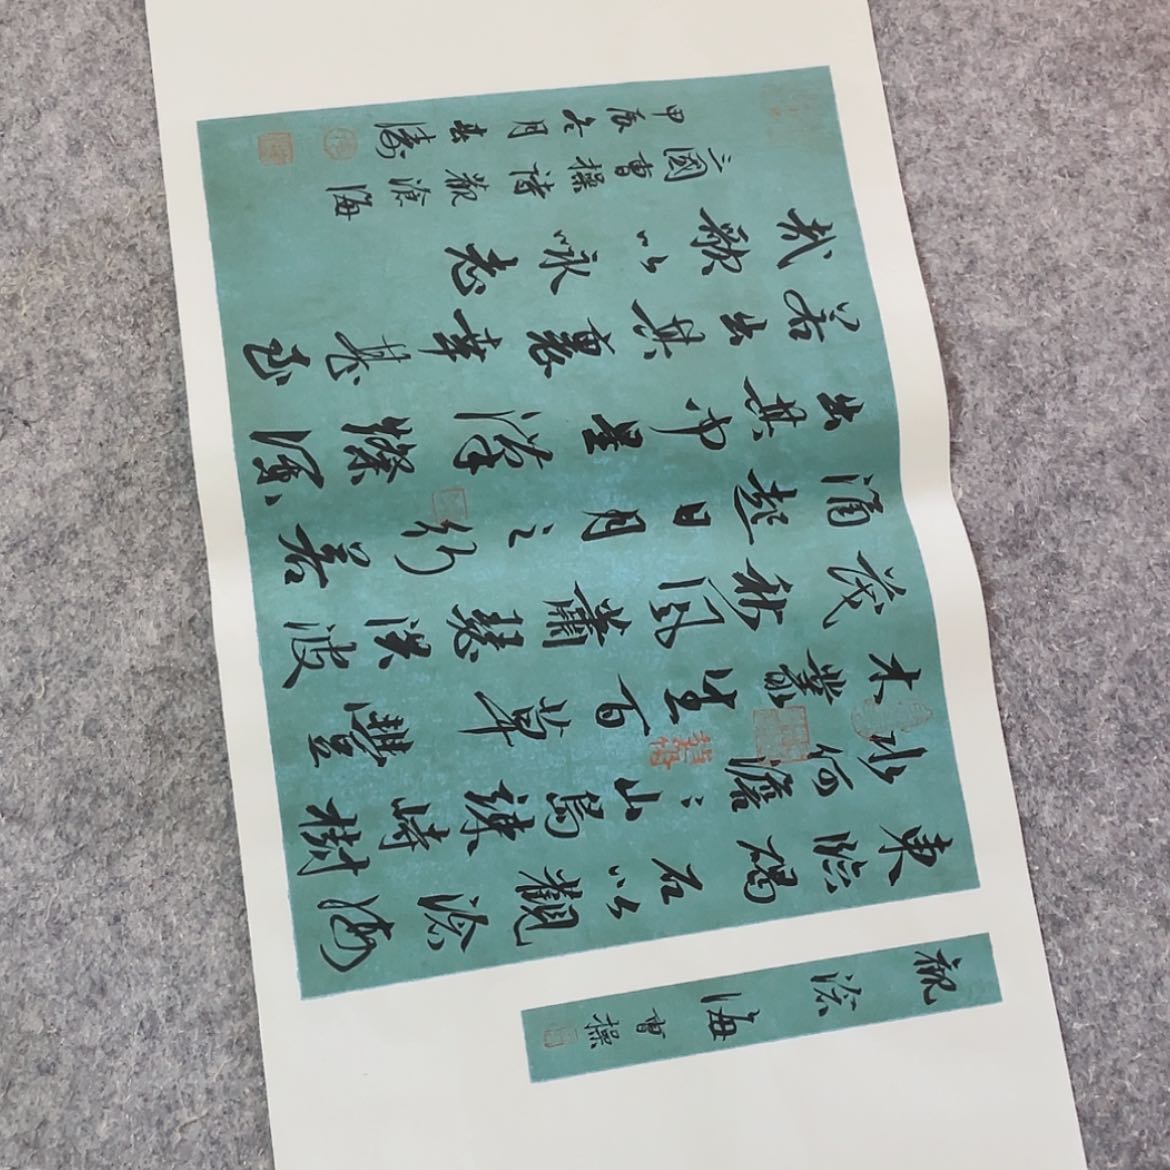 觀滄海 曹操
東臨碣石以觀滄海
水何澹〻山島竦峙樹
木叢生百草豐
茂秋風蕭瑟洪波
涌起日月之行若
出其中星漢燦爛
若出其裏幸甚至
哉歌以咏志
三國曹操詩觀滄海
甲辰冬月春濤